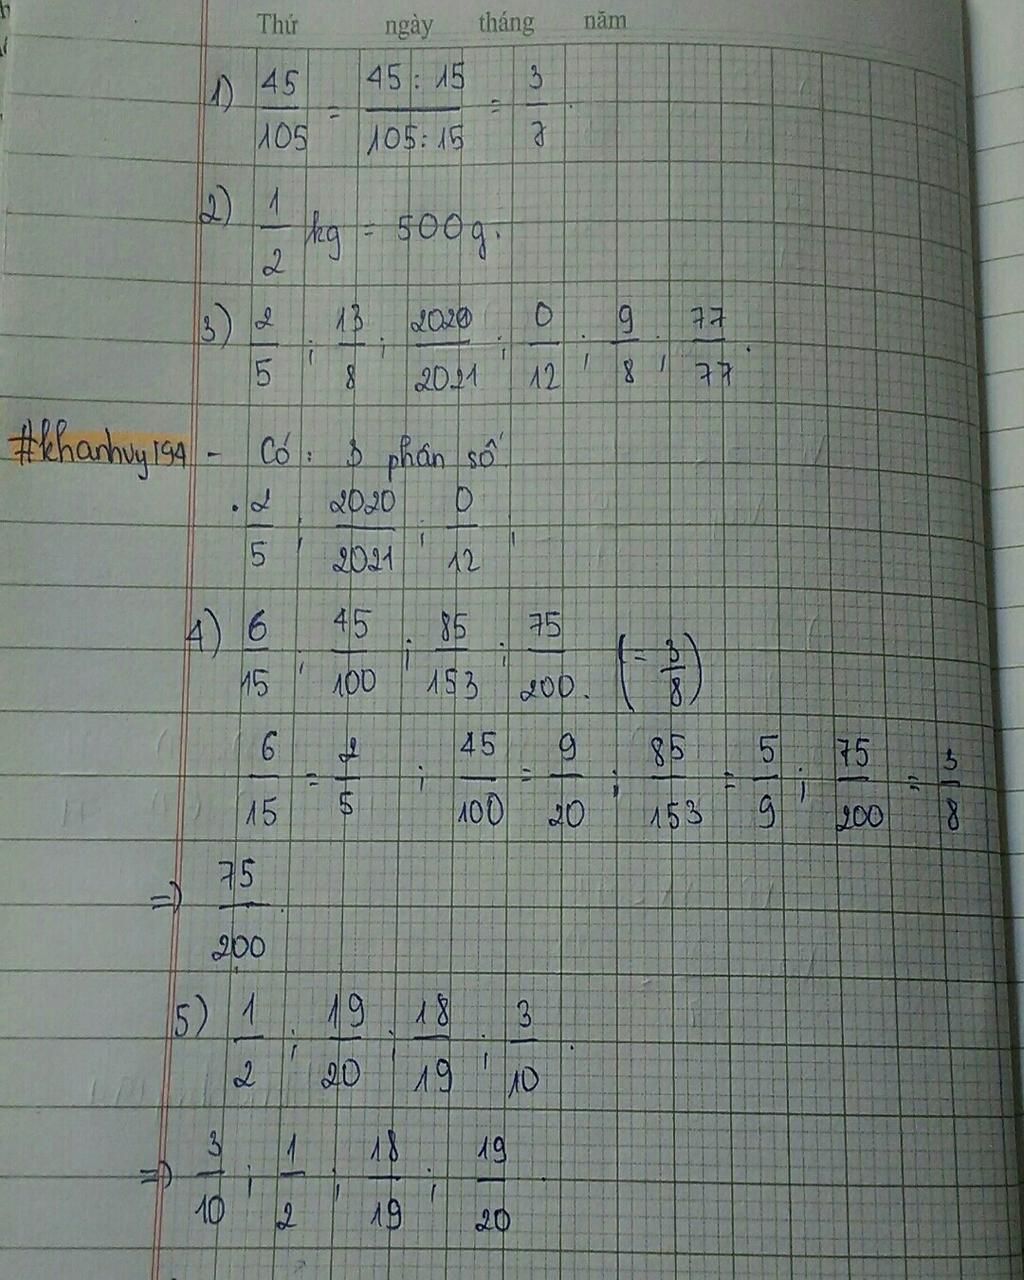 Thứ ngày tháng năm
1) 45/105 = 45 : 15/105 : 15 = 3/7.
2) 1/2 kg = 500g.
3) 2/5 ; 13/8 ; 2020/2021 ; 0/12 ; 9/8 ; 77/77.
#khanhvy194 - Có : 3 phân số
. 2/5 ; 2020/2021 ; 0/12 ;
4) 6/15 ; 45/100 ; 85/153 ; 75/200. (= 3/8)
6/15 = 2/5 ; 45/100 = 9/20 ; 85/153 = 5/9 ; 75/200 = 3/8
=) 75/200.
5) 1/2 ; 19/20 ; 18/19 ; 3/10.
=) 3/10 ; 1/2 ; 18/19 ; 19/20.